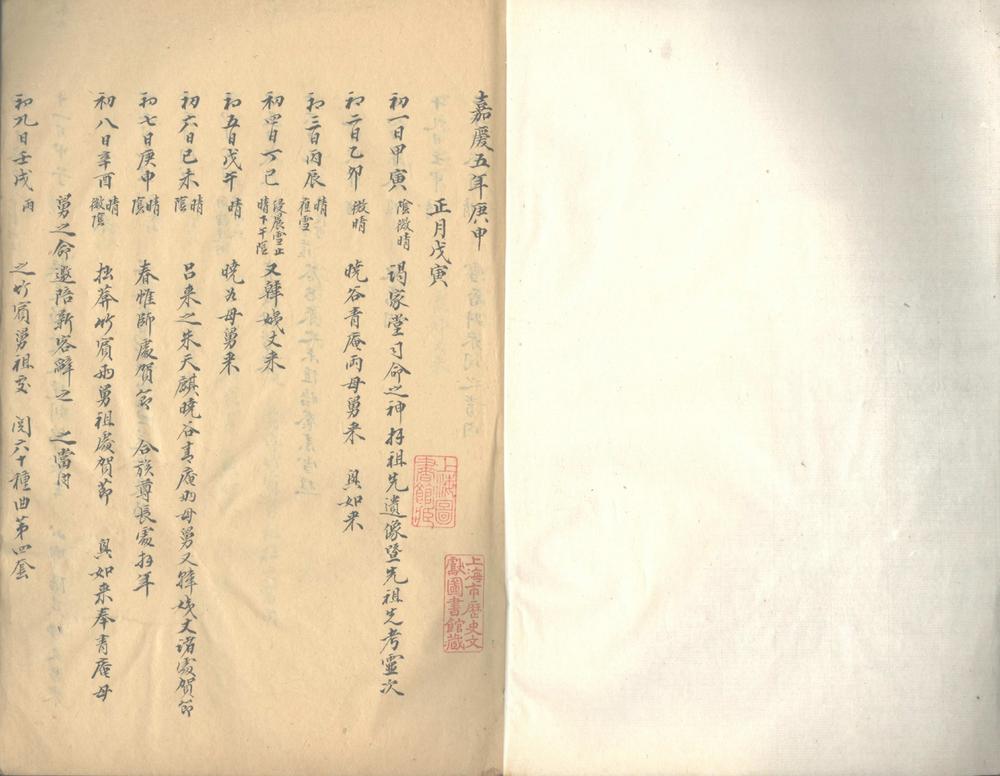 嘉慶五年庚申
正月戊寅
初一日甲寅 陰微晴 謁家堂司命之神拜祖先遺像暨先祖先考靈次
初二日乙卯 微晴 曉谷青庵兩母舅來 與如來
初三日丙辰 晴 雪
初四日丁巳 後晨雪止晴下午陰 又韓姨丈來
初五日戊午 晴 曉為母舅來
初六日己未 晴陰 呂來之朱天麒曉谷青庵兩母舅又韓姨丈諸處賀節
初七日庚申 晴陰 春帷師處賀節 合族尊長處拜年
初八日辛酉 晴微陰 拙莽竹賓兩舅祖處賀節 與如來奉青庵母
舅之命邀陪新客辭之 之當內
初九日壬戌 雨 之竹賓舅祖處 閱六十種曲第四套
上海圖書館藏
上海市歷史文獻圖書館藏